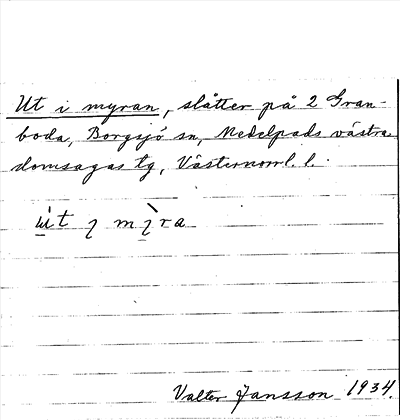 Ut i myran, slåtter på 2 Gran-
boda, Borgsjö sn, Medelpads västra
domsagas tg, Västernorrl. l.
ùt ı mı̀ra
Valter Jansson 1934.